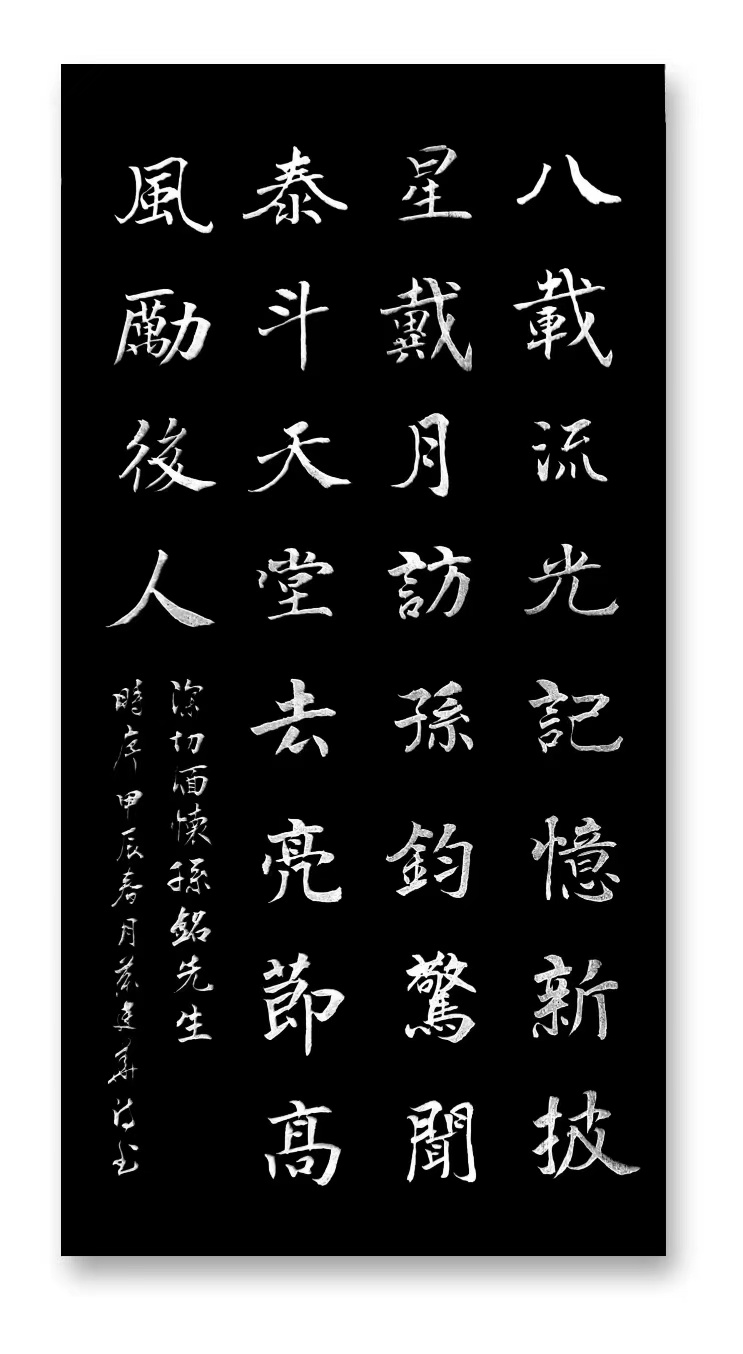 八載流光記憶新披
星戴月訪孫鈞驚聞
泰斗天堂去亮節高
風勵後人
深切緬懷孫銘先生
時序甲辰春月蔡建華詩書